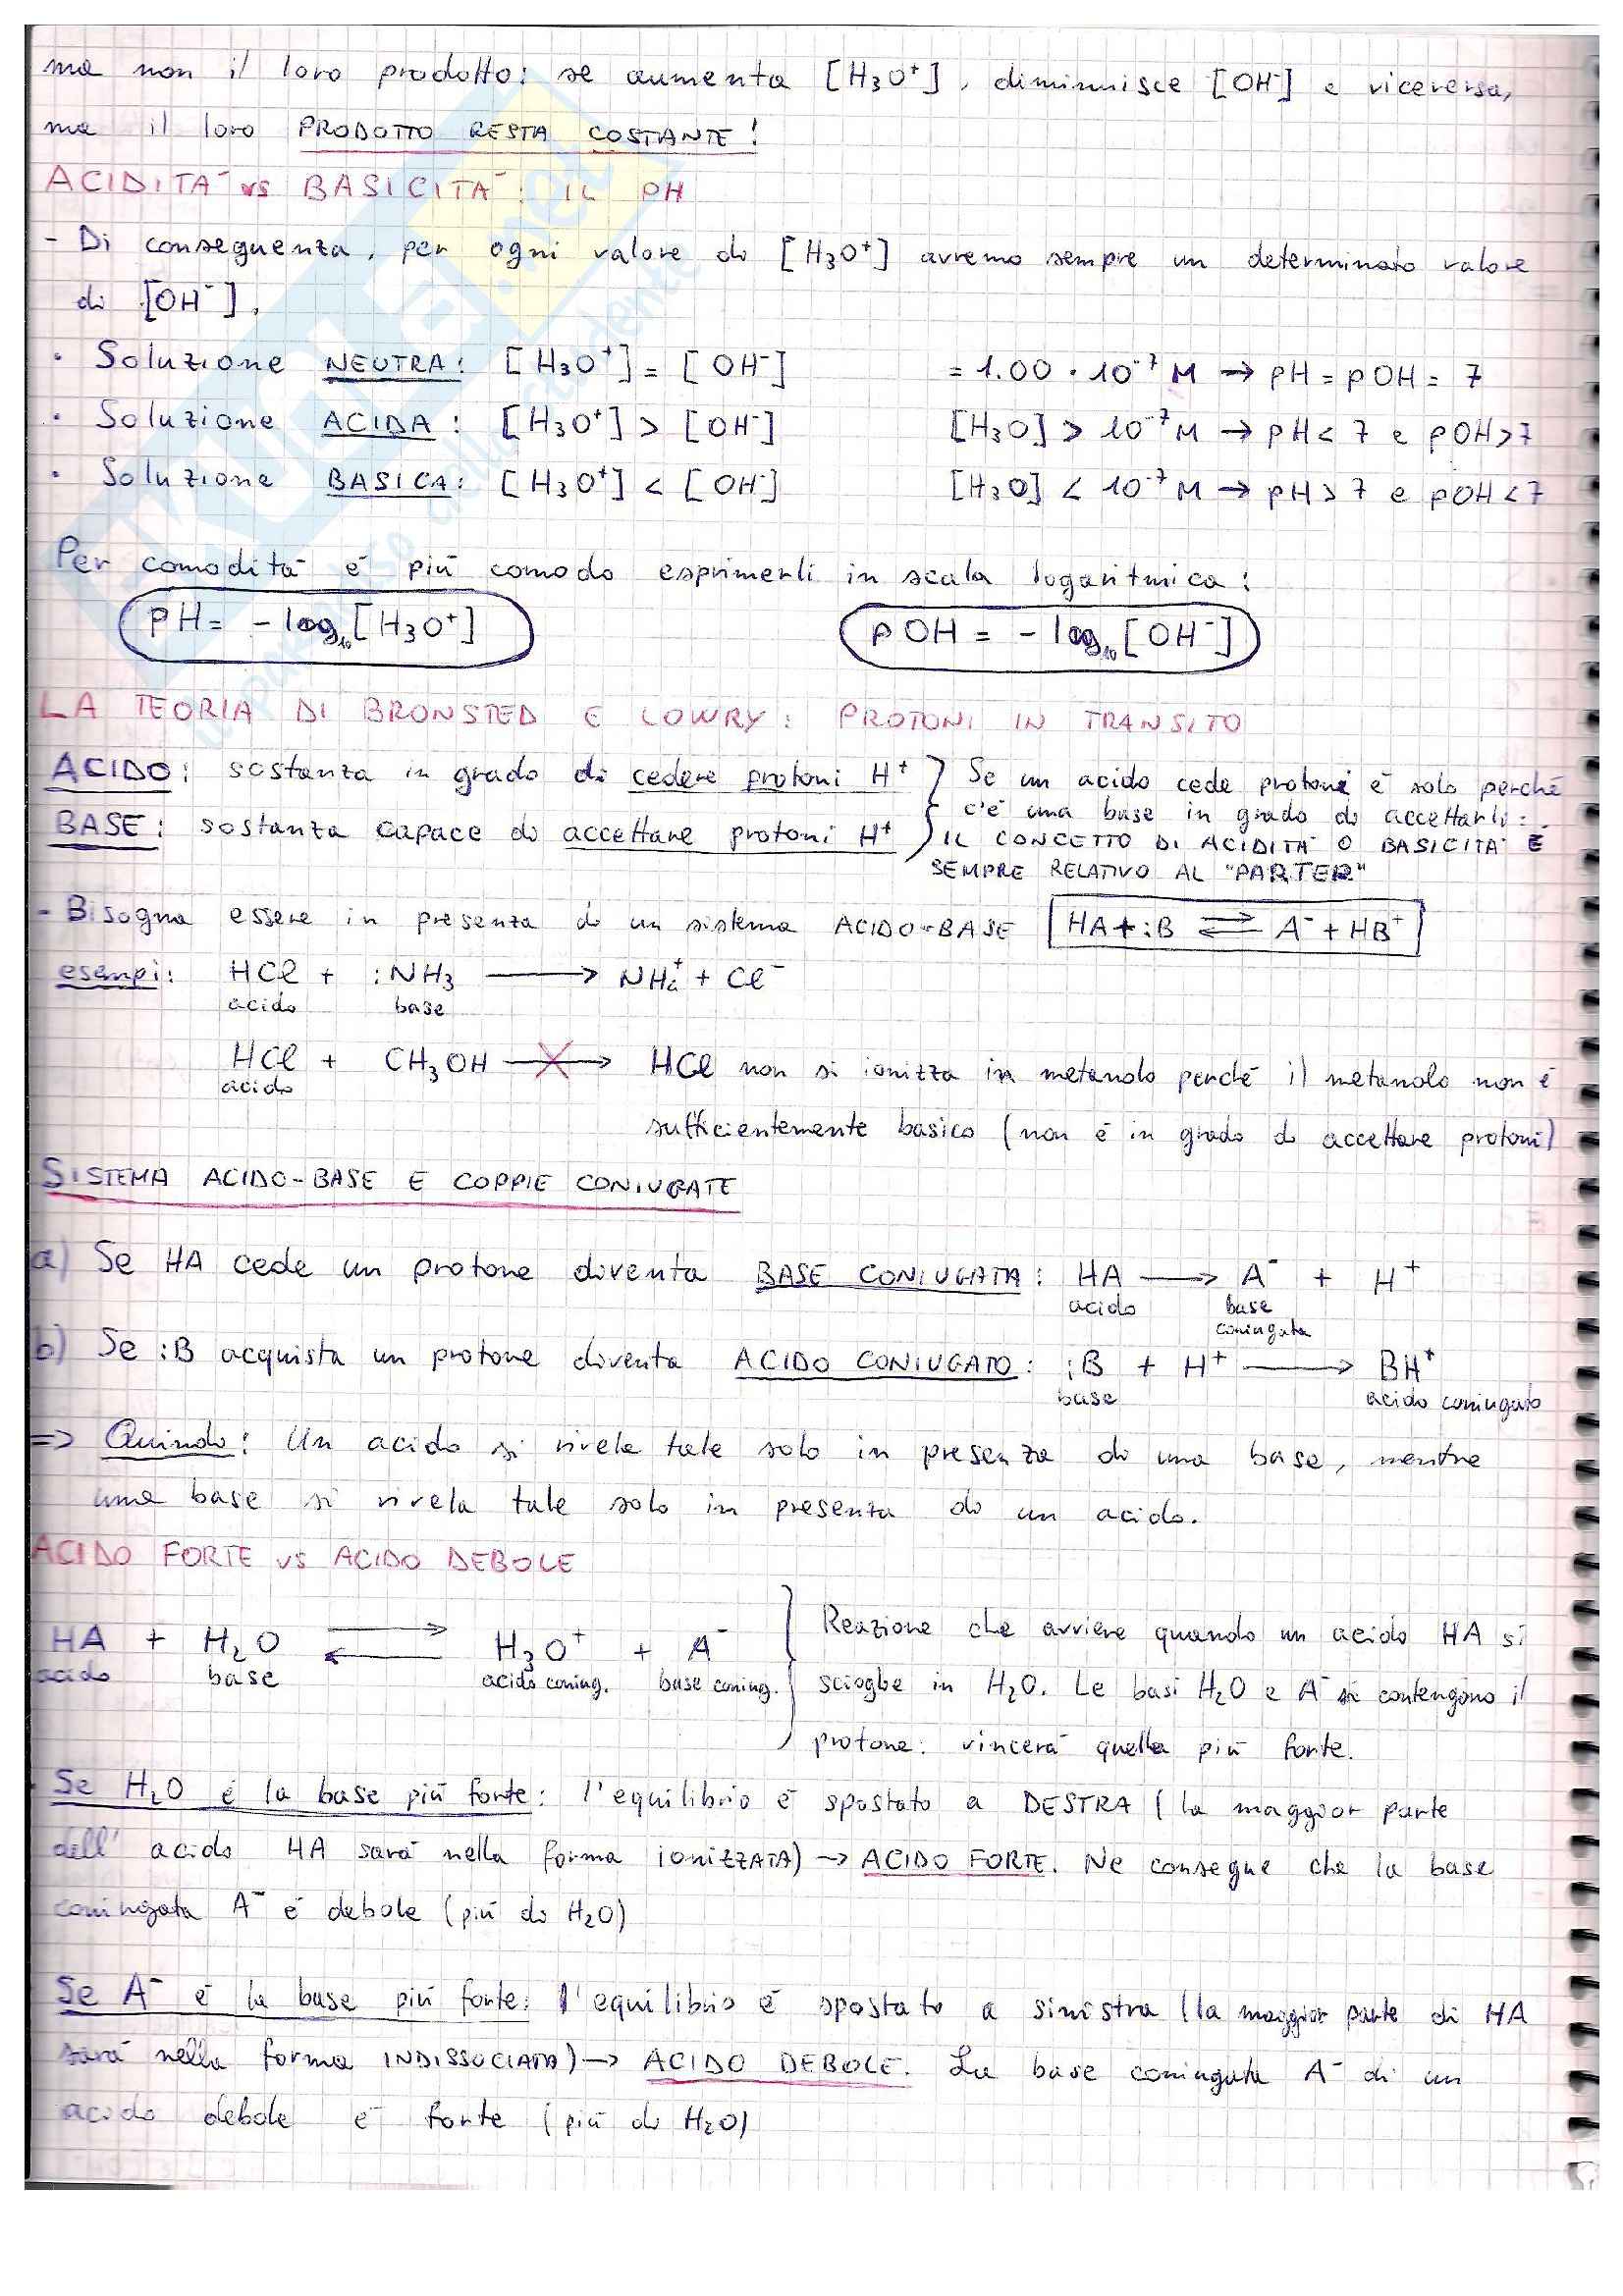 ma non il loro prodotto: se aumenta [H₃O⁺], diminuisce [OH⁻] e viceversa,
ma il loro PRODOTTO RESTA COSTANTE!
ACIDITÀ vs BASICITÀ: IL PH
- Di conseguenza, per ogni valore di [H₃O⁺] avremo sempre un determinato valore
di [OH⁻].
• Soluzione NEUTRA: [H₃O⁺] = [OH⁻] = 1.00 · 10⁻⁷ M → pH = pOH = 7
• Soluzione ACIDA: [H₃O⁺] > [OH⁻] [H₃O] > 10⁻⁷ M → pH < 7 e pOH > 7
• Soluzione BASICA: [H₃O⁺] < [OH⁻] [H₃O] < 10⁻⁷ M → pH > 7 e pOH < 7
Per comodità è più comodo esprimerli in scala logaritmica:
pH = - log₁₀ [H₃O⁺] pOH = - log₁₀ [OH⁻]
LA TEORIA DI BRONSTED E LOWRY: PROTONI IN TRANSITO
ACIDO: sostanza in grado di cedere protoni H⁺ } Se un acido cede protoni è solo perché
c'è una base in grado di accettarli:
BASE: sostanza capace di accettare protoni H⁺ IL CONCETTO DI ACIDITÀ O BASICITÀ È
SEMPRE RELATIVO AL "PARTER"
- Bisogna essere in presenza di un sistema ACIDO-BASE HA + :B ⇌ A⁻ + HB⁺
esempi: HCl + :NH₃ → NH₄⁺ + Cl⁻
acido base
HCl + CH₃OH → HCl non si ionizza in metanolo perché il metanolo non è
acido
sufficientemente basico (non è in grado di accettare protoni)
SISTEMA ACIDO-BASE E COPPIE CONIUGATE
a) Se HA cede un protone diventa BASE CONIUGATA: HA → A⁻ + H⁺
acido base
coniugata
b) Se :B acquista un protone diventa ACIDO CONIUGATO: :B + H⁺ → BH⁺
base acido coniugato
=> Quindi: Un acido si rivela tale solo in presenza di una base, mentre
una base si rivela tale solo in presenza di un acido.
ACIDO FORTE vs ACIDO DEBOLE
HA + H₂O ⇌ H₃O⁺ + A⁻ } Reazione che avviene quando un acido HA si
acido base acido coniug. base coniug. scioglie in H₂O. Le basi H₂O e A⁻ si contengono il
protone: vincerà quella più forte.
• Se H₂O è la base più forte: l'equilibrio è spostato a DESTRA (la maggior parte
dell'acido HA sarà nella forma IONIZZATA) → ACIDO FORTE. Ne consegue che la base
coniugata A⁻ è debole (più di H₂O)
Se A⁻ è la base più forte: l'equilibrio è spostato a sinistra (la maggior parte di HA
sarà nella forma INDISSOCIATA) → ACIDO DEBOLE. La base coniugata A⁻ di un
acido debole è forte (più di H₂O)